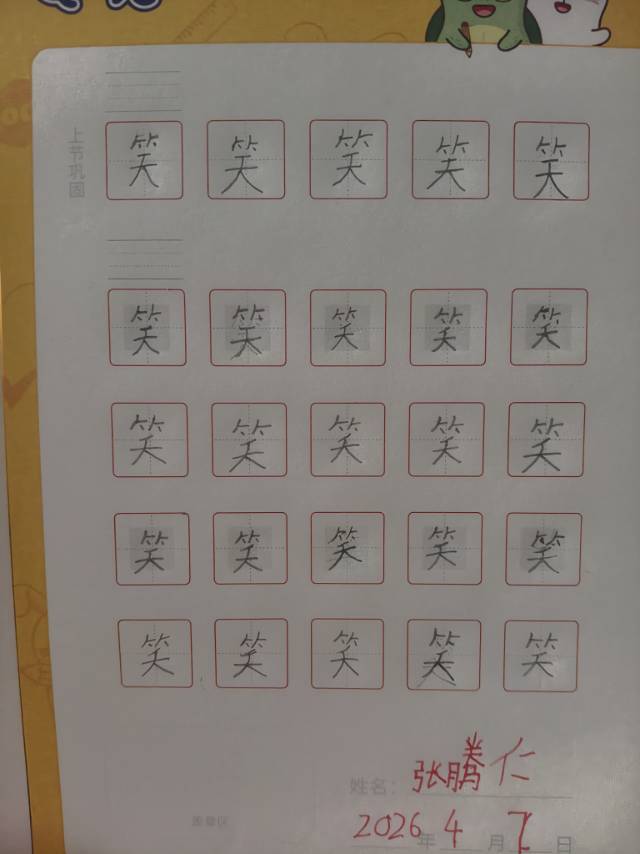 上节巩固
笑 笑 笑 笑 笑
笑 笑 笑 笑 笑
笑 笑 笑 笑 笑
笑 笑 笑 笑 笑
笑 笑 笑 笑 笑
姓名: 张腾仁
2026年4月7日